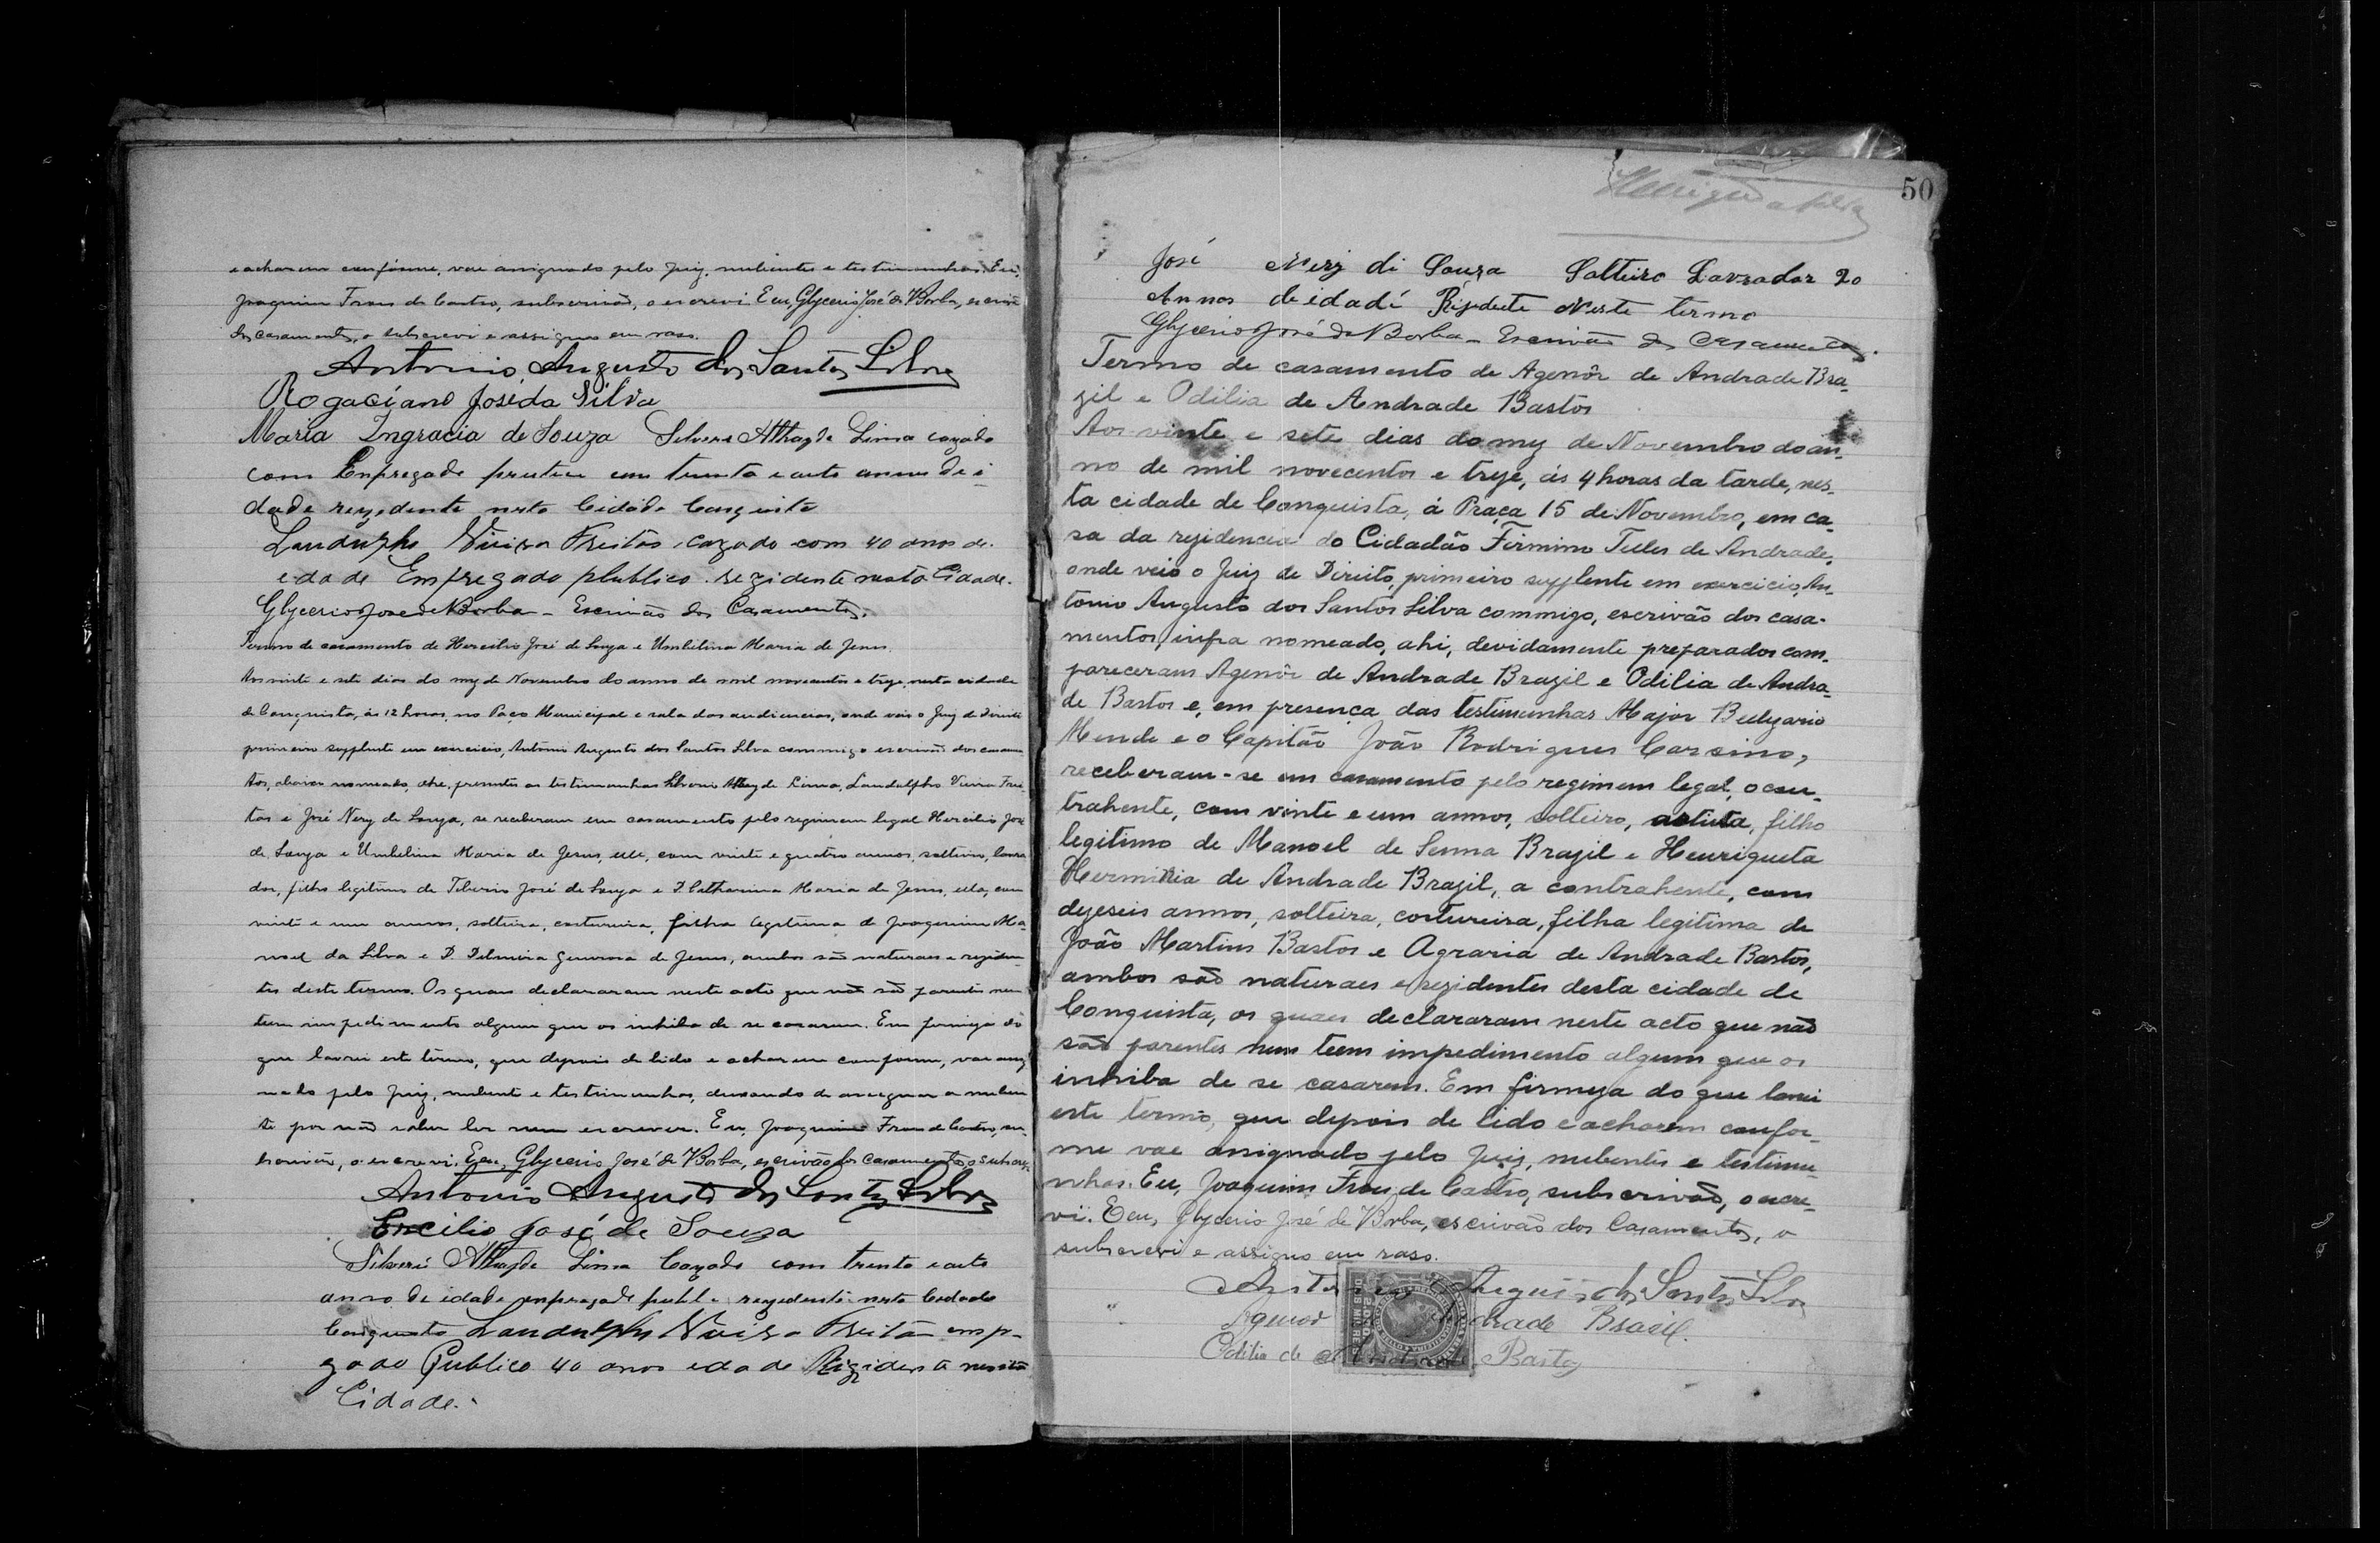 e acharem conforme, vae assignado pelo Juiz, nubentes e testimunhas. Eu,
Joaquim Fraes de Castro, subscrivão, o escrevi. E eu, Glycerio José de Borba, escrivão
dos casamentos, o subscrevi e assigno em raso.
Antonio Augusto dos Santos Silva
Rogaciano José da Silva
Maria Ingracia de Souza Silverio Lima cazado
com Empregado trinta e oito annos de i-
dade rezidente nesta Cidade Conquista
Landulpho Vieira Freitas cazado com 40 anos de
edade Empregado plublico rezidente nesta Cidade.
Glycerio José de Borba - Escrivão dos Casamentos.
Termo de casamento de Hercilio José de Souza e Umbelina Maria de Jesus.
Aos vinte e sete dias do mez de Novembro do anno de mil novecentos e treze, nesta cidade
de Conquista, ás 12 horas, no Paço Municipal e sala das audiencias, onde veio o Juiz de Direito
primeiro supplente em exercicio, Antônio Augusto dos Santos Silva commigo escrivão dos casamen-
tos, abaixo nomeado, ahi, presentes as testimunhas Silverio Lima, Landulpho Vieira Frei-
tas e José Nery de Souza, se receberam em casamento pelo regimem legal Hercilio José
de Souza e Umbelina Maria de Jesus, elle, com vinte e quatro annos, solteiro, lavra-
dor, filho legitimo de Tiberio José de Souza e D. Catharina Maria de Jesus, ella, com
vinte e um annos, solteira, costureira, filha legitima de Joaquim Ma-
noel da Silva e D. Delmira Generosa de Jesus, ambos são naturaes e residen-
tes deste termo. Os quaes declararam neste acto que não são parentes nem
tem impedimento algum que os inhiba de se casarem. Em firmeza do
que lavrei este termo, que depois de lido e acharem conforme, vae assig-
nado pelo Juiz, nubente e testimunhas, deixando de assignar a nuben-
te por não saber ler nem escrever. Eu, Joaquim Fraes de Castro, su-
bscrivão, o escrevi. E eu, Glycerio José de Borba, escrivão dos casamentos, o subscrevi.
Antonio Augusto dos Santos Silva
Ercilio José de Souza
Silverio Lima Cazado com trinta e oito
anno de idade empregado publ. rezidente nesta Cidade
Conquista Landulpho Vieira Freitas emp-
gado Publico 40 anos edade Rezidente nesta
Cidade.
50
José Nerz di Souza Solteiro Lavrador 20
Annos de idadé Rezidente Neste termo
Glycerio José de Borba - Escrivão dos Casamentos.
Termo de casamento de Agenôr de Andrade Bra-
zil e Odilia de Andrade Bastos
Aos vinte e sete dias do mez de Novembro do an-
no de mil novecentos e treze, ás 4 horas da tarde, nes-
ta cidade de Conquista, á Praça 15 de Novembro, em ca-
sa da rezidencia do Cidadão Firmino Telles de Andrade,
onde veio o Juiz de Direito, primeiro supplente em exercicio, An-
tonio Augusto dos Santos Silva commigo, escrivão dos casa-
mentos, infra nomeado, ahi, devidamente preparados com-
pareceram Agenôr de Andrade Brazil e Odilia de Andra-
de Bastos e, em presença das testimunhas Major
e o Capitão João Rodrigues
receberam-se em casamento pelo regimem legal, o con-
trahente, com vinte e um annos, solteiro, artista, filho
legitimo de Manoel de Senna Brazil e Henriqueta
Herminia de Andrade Brazil, a contrahente, com
dezeseis annos, solteira, costureira, filha legitima de
João Martins Bastos e Agraria de Andrade Bastos,
ambos são naturaes e rezidentes desta cidade de
Conquista, os quaes declararam neste acto que não
são parentes nem teem impedimento algum que os
inhiba de se casarem. Em firmeza do que lavrei
este termo, que depois de lido e acharem confor-
me vae assignado pelo Juiz, nubentes e testimu-
nhas. Eu, Joaquim Fraes de Castro, subscrivão, o escre-
vi. E eu, Glycerio José de Borba, escrivão dos Casamentos, o
subscrevi e assigno em raso.
Antonio Augusto dos Santos Silva
Agenor Andrade Brasil.
Odilia de Andrade Bastos